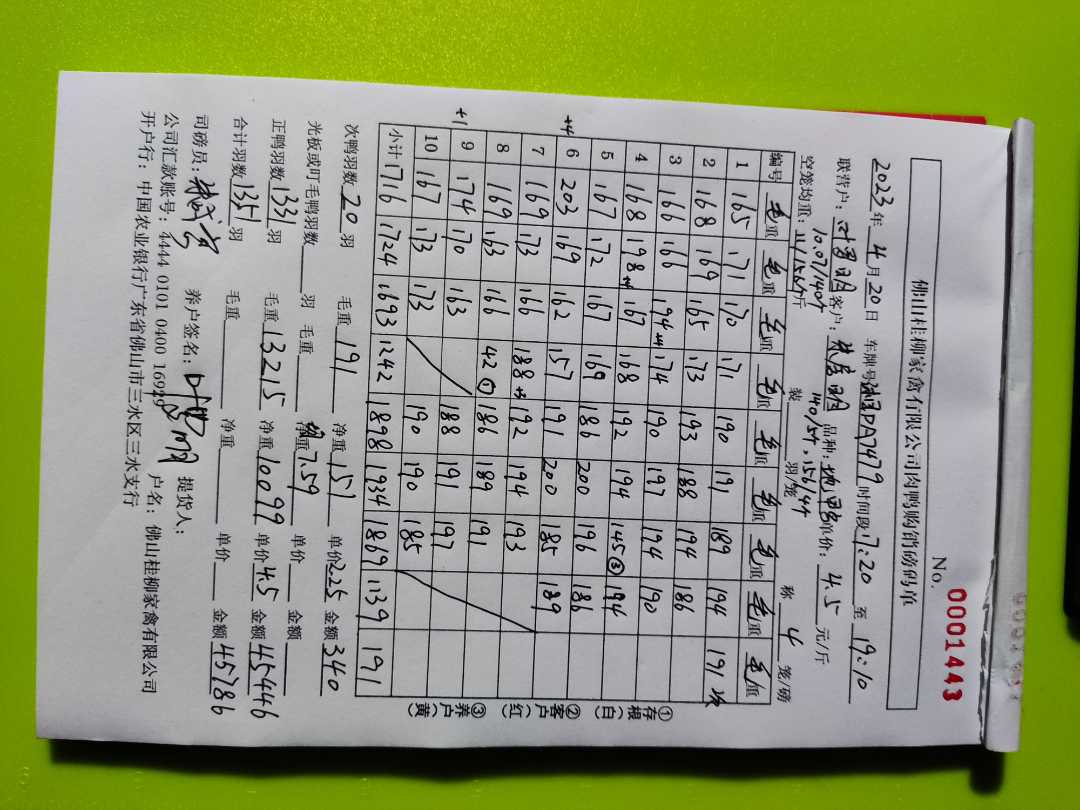 No. 0001443
佛山桂柳家禽有限公司肉鸭购销磅码单
2023年4月20日 车牌号 DA7479 时间段 17:20 至 19:10
联营户： 客户： 品种： 单价：4.5元/斤
10.07/140个 14054, 15644
空笼均重： 斤 装 羽/笼 称 4 笼/磅
编号 毛重 毛重 毛重 毛重 毛重 毛重 毛重 毛重 毛重
1 165 171 170 171 190 191 189 194 191 次
2 168 169 165 173 193 188 194 186
3 166 166 194+4 174 190 197 194 190
4 168 198+4 167 168 192 194 145③ 194
5 167 172 167 169 186 200 196 186
+4 6 203 169 162 157 191 200 185 189
7 169 173 166 188+3 192 194 193
8 169 163 166 42① 186 189 191
+1 9 174 170 163 188 191 197
10 167 173 173 190 190 185
小计 1716 1724 1693 1242 1898 1934 1869 1139 191
次鸭羽数 20 羽 毛重 191 净重 151 单价 2.25 金额 340
光板或叮毛鸭羽数 羽 毛重 净重 7.59 单价 金额
正鸭羽数 1331 羽 毛重 13215 净重 10099 单价 4.5 金额 45446
合计羽数 1351 羽 毛重 净重 单价 金额 45786
司磅员： 养户签名： 提货人：
公司汇款账号：4444 0101 0400 16929 户名：佛山桂柳家禽有限公司
开户行：中国农业银行广东省佛山市三水区三水支行
①存根（白）
②客户（红）
③养户（黄）